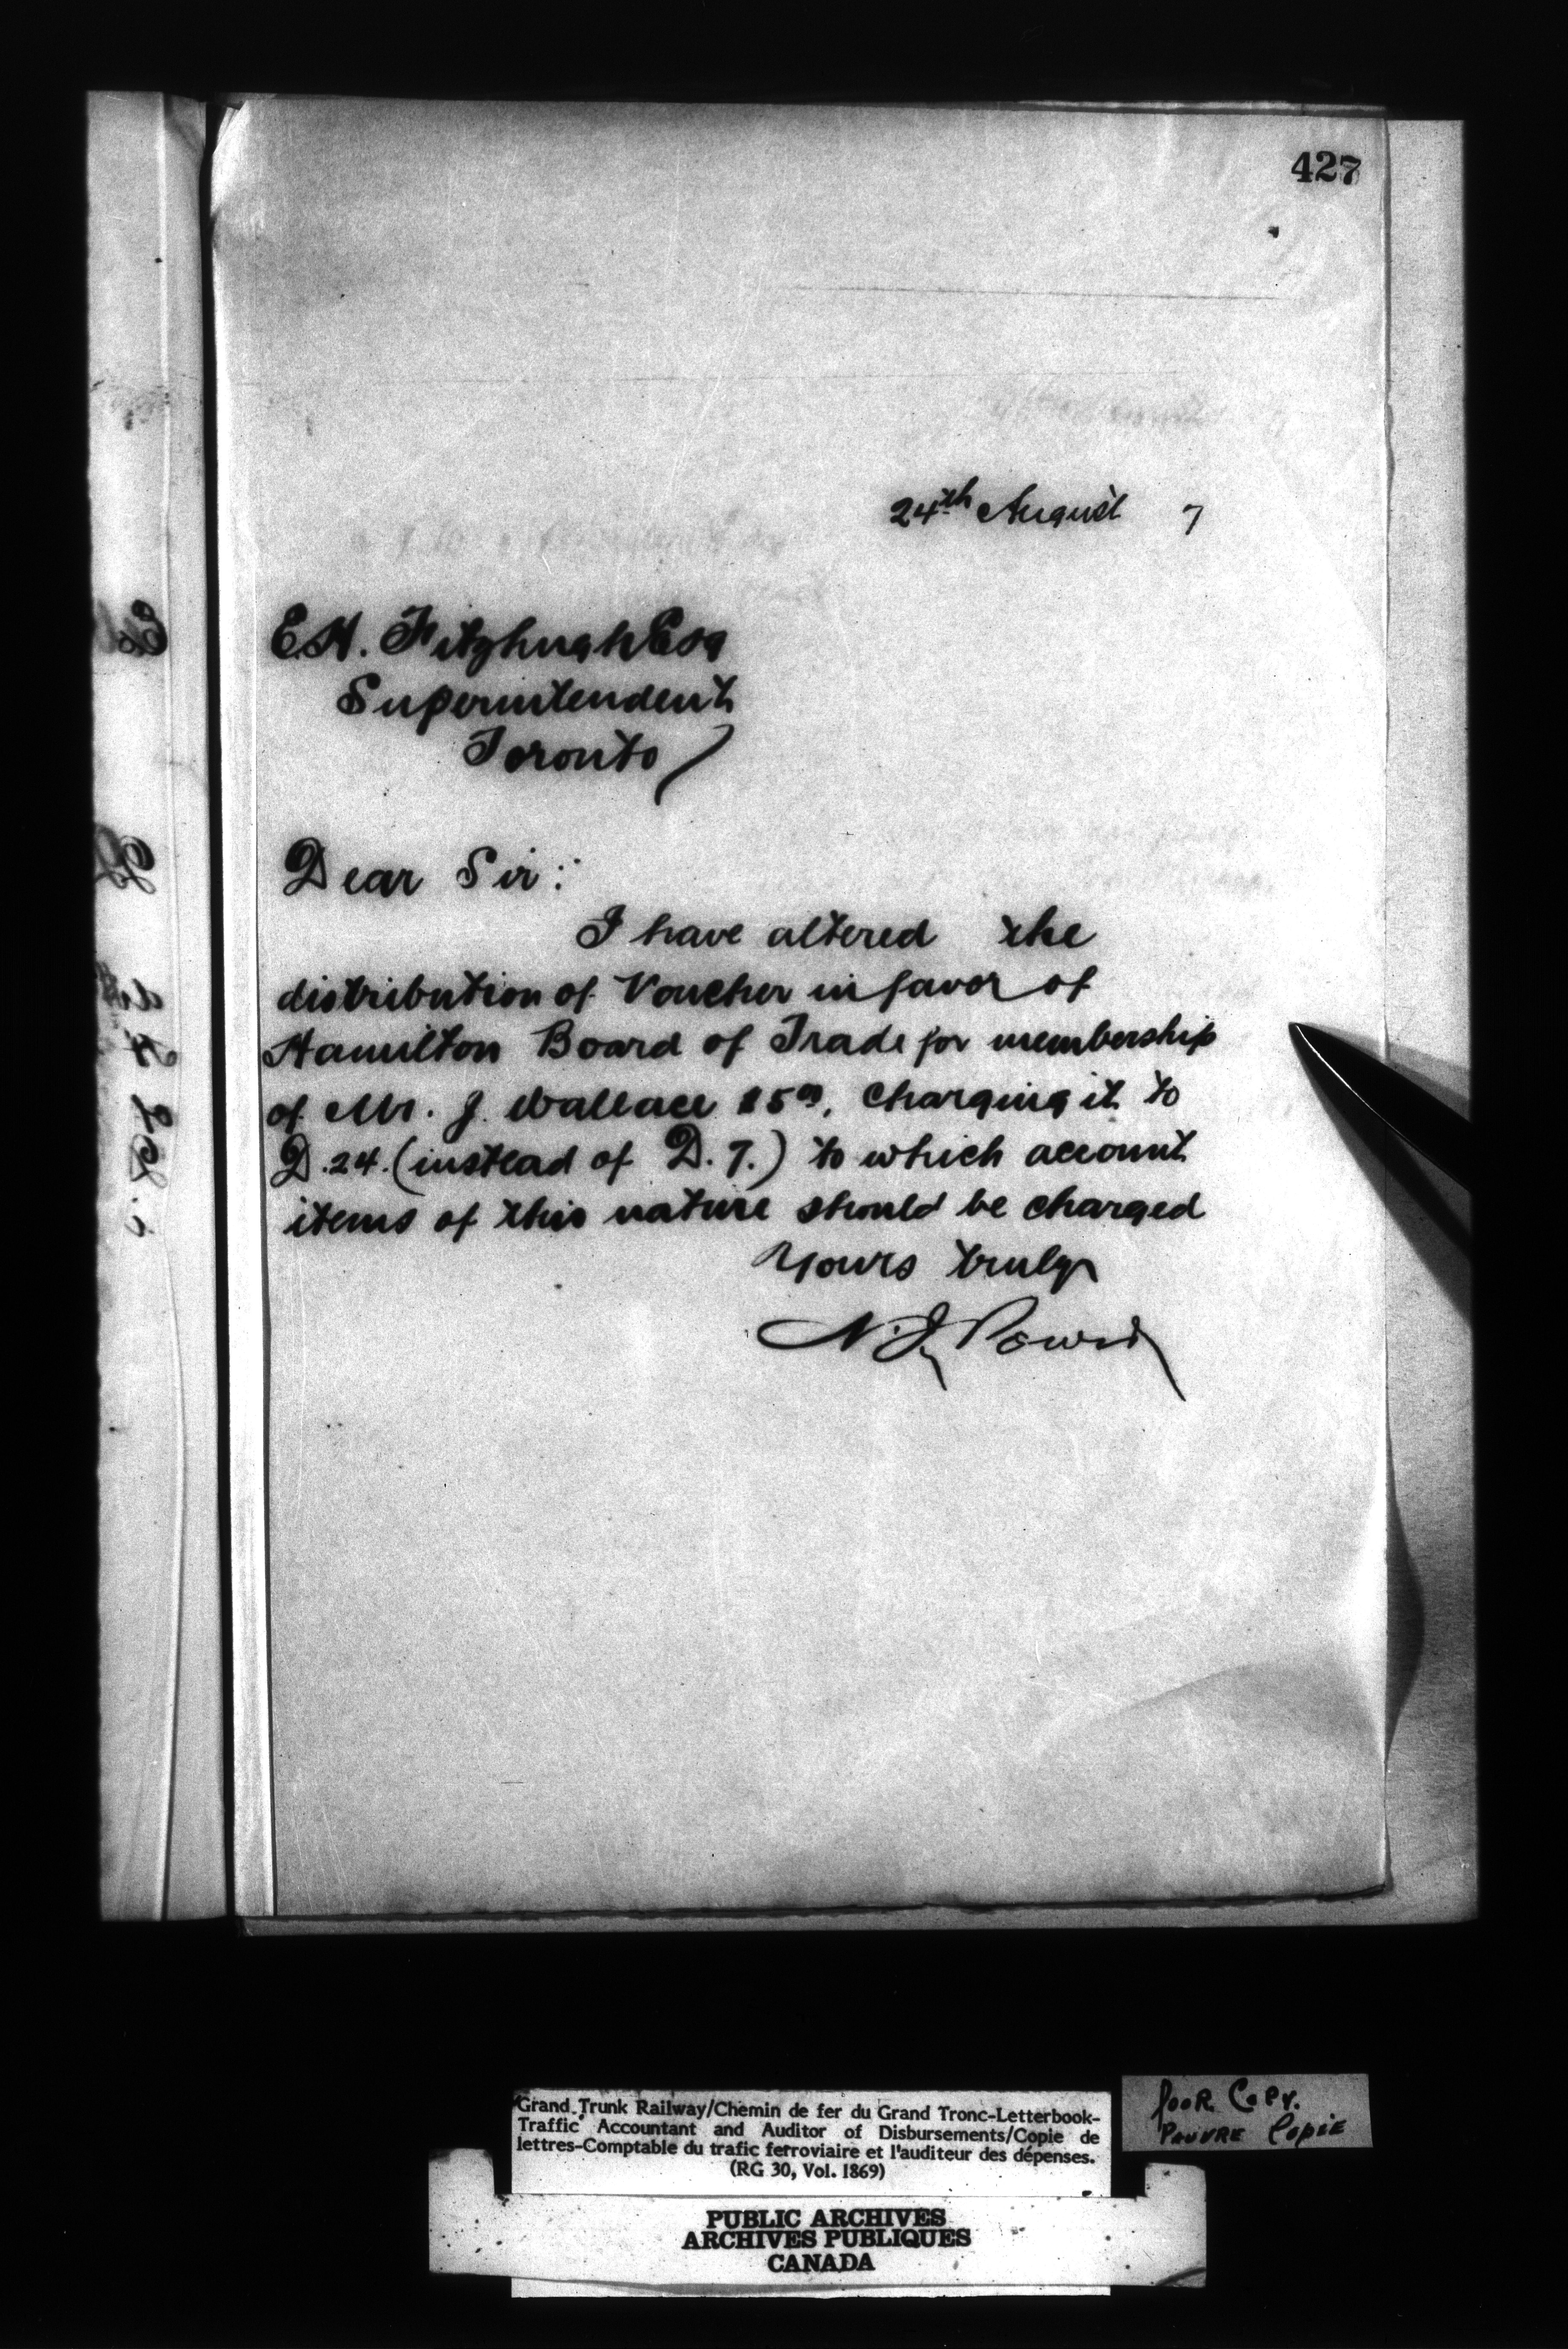 427
24th August 7
E.H. Fitzhugh Esq
Superintendent
Toronto
Dear Sir:
I have altered the
distribution of Voucher in favor of
Hamilton Board of Trade for membership
of Mr. J. Wallace $5.00, charging it to
D.24. (instead of D. 7.) to which account
items of this nature should be charged
Yours truly
N. J. Power
Grand Trunk Railway/Chemin de fer du Grand Tronc-Letterbook-
Traffic Accountant and Auditor of Disbursements/Copie de
lettres-Comptable du trafic ferroviaire et l'auditeur des dépenses.
(RG 30, Vol. 1869)
Poor Copy.
Pauvre Copie
PUBLIC ARCHIVES
ARCHIVES PUBLIQUES
CANADA